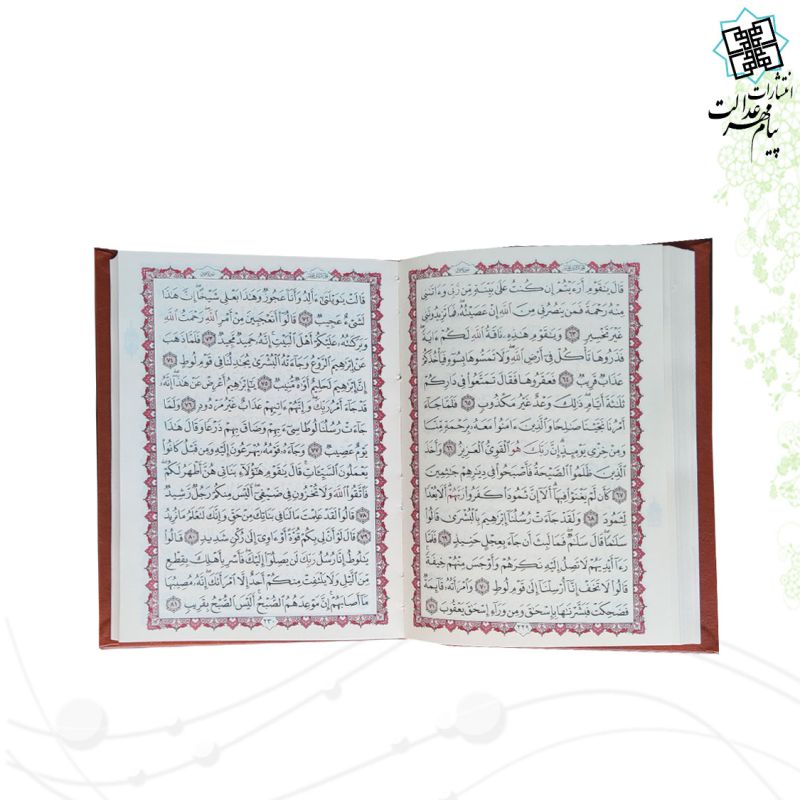 انتشارات
پیام مهر عدالت
قَالَ يَٰقَوْمِ أَرَءَيْتُمْ إِن كُنتُ عَلَىٰ بَيِّنَةٍ مِّن رَّبِّى وَءَاتَىٰنِى
مِنْهُ رَحْمَةً فَمَن يَنصُرُنِى مِنَ ٱللَّهِ إِنْ عَصَيْتُهُۥ فَمَا تَزِيدُونَنِى
غَيْرَ تَخْسِيرٍ ٦٣ وَيَٰقَوْمِ هَٰذِهِۦ نَاقَةُ ٱللَّهِ لَكُمْ ءَايَةً
فَذَرُوهَا تَأْكُلْ فِىٓ أَرْضِ ٱللَّهِ وَلَا تَمَسُّوهَا بِسُوٓءٍ فَيَأْخُذَكُمْ
عَذَابٌ قَرِيبٌ ٦٤ فَعَقَرُوهَا فَقَالَ تَمَتَّعُوا۟ فِى دَارِكُمْ
ثَلَٰثَةَ أَيَّامٍ ذَٰلِكَ وَعْدٌ غَيْرُ مَكْذُوبٍ ٦٥ فَلَمَّا جَآءَ
أَمْرُنَا نَجَّيْنَا صَٰلِحًا وَٱلَّذِينَ ءَامَنُوا۟ مَعَهُۥ بِرَحْمَةٍ مِّنَّا
وَمِنْ خِزْىِ يَوْمِئِذٍ إِنَّ رَبَّكَ هُوَ ٱلْقَوِىُّ ٱلْعَزِيزُ ٦٦ وَأَخَذَ
ٱلَّذِينَ ظَلَمُوا۟ ٱلصَّيْحَةُ فَأَصْبَحُوا۟ فِى دِيَٰرِهِمْ جَٰثِمِينَ
٦٧ كَأَن لَّمْ يَغْنَوْا۟ فِيهَآ أَلَآ إِنَّ ثَمُودَا۟ كَفَرُوا۟ رَبَّهُمْ أَلَا بُعْدًا
لِّثَمُودَ ٦٨ وَلَقَدْ جَآءَتْ رُسُلُنَآ إِبْرَٰهِيمَ بِٱلْبُشْرَىٰ قَالُوا۟
سَلَٰمًا قَالَ سَلَٰمٌ فَمَا لَبِثَ أَن جَآءَ بِعِجْلٍ حَنِيذٍ ٦٩ فَلَمَّا
رَءَآ أَيْدِيَهُمْ لَا تَصِلُ إِلَيْهِ نَكِرَهُمْ وَأَوْجَسَ مِنْهُمْ خِيفَةً
قَالُوا۟ لَا تَخَفْ إِنَّآ أُرْسِلْنَآ إِلَىٰ قَوْمِ لُوطٍ ٧٠ وَٱمْرَأَتُهُۥ قَآئِمَةٌ
فَضَحِكَتْ فَبَشَّرْنَٰهَا بِإِسْحَٰقَ وَمِن وَرَآءِ إِسْحَٰقَ يَعْقُوبَ ٧١
٢٢٩
قَالَتْ يَٰوَيْلَتَىٰٓ ءَأَلِدُ وَأَنَا۠ عَجُوزٌ وَهَٰذَا بَعْلِى شَيْخًا إِنَّ هَٰذَا
لَشَىْءٌ عَجِيبٌ ٧٢ قَالُوٓا۟ أَتَعْجَبِينَ مِنْ أَمْرِ ٱللَّهِ رَحْمَتُ ٱللَّهِ
وَبَرَكَٰتُهُۥ عَلَيْكُمْ أَهْلَ ٱلْبَيْتِ إِنَّهُۥ حَمِيدٌ مَّجِيدٌ ٧٣ فَلَمَّا ذَهَبَ
عَنْ إِبْرَٰهِيمَ ٱلرَّوْعُ وَجَآءَتْهُ ٱلْبُشْرَىٰ يُجَٰدِلُنَا فِى قَوْمِ لُوطٍ ٧٤
إِنَّ إِبْرَٰهِيمَ لَحَلِيمٌ أَوَّٰهٌ مُّنِيبٌ ٧٥ يَٰٓإِبْرَٰهِيمُ أَعْرِضْ عَنْ هَٰذَآ إِنَّهُۥ
قَدْ جَآءَ أَمْرُ رَبِّكَ وَإِنَّهُمْ ءَاتِيهِمْ عَذَابٌ غَيْرُ مَرْدُودٍ ٧٦ وَلَمَّا
جَآءَتْ رُسُلُنَا لُوطًا سِىٓءَ بِهِمْ وَضَاقَ بِهِمْ ذَرْعًا وَقَالَ هَٰذَا
يَوْمٌ عَصِيبٌ ٧٧ وَجَآءَهُۥ قَوْمُهُۥ يُهْرَعُونَ إِلَيْهِ وَمِن قَبْلُ كَانُوا۟
يَعْمَلُونَ ٱلسَّيِّـَٔاتِ قَالَ يَٰقَوْمِ هَٰٓؤُلَآءِ بَنَاتِى هُنَّ أَطْهَرُ لَكُمْ
فَٱتَّقُوا۟ ٱللَّهَ وَلَا تُخْزُونِ فِى ضَيْفِىٓ أَلَيْسَ مِنكُمْ رَجُلٌ رَّشِيدٌ
٧٨ قَالُوا۟ لَقَدْ عَلِمْتَ مَا لَنَا فِى بَنَاتِكَ مِنْ حَقٍّ وَإِنَّكَ لَتَعْلَمُ مَا نُرِيدُ
٧٩ قَالَ لَوْ أَنَّ لِى بِكُمْ قُوَّةً أَوْ ءَاوِىٓ إِلَىٰ رُكْنٍ شَدِيدٍ ٨٠ قَالُوا۟
يَٰلُوطُ إِنَّا رُسُلُ رَبِّكَ لَن يَصِلُوٓا۟ إِلَيْكَ فَأَسْرِ بِأَهْلِكَ بِقِطْعٍ
مِّنَ ٱلَّيْلِ وَلَا يَلْتَفِتْ مِنكُمْ أَحَدٌ إِلَّا ٱمْرَأَتَكَ إِنَّهُۥ مُصِيبُهَا
مَآ أَصَابَهُمْ إِنَّ مَوْعِدَهُمُ ٱلصُّبْحُ أَلَيْسَ ٱلصُّبْحُ بِقَرِيبٍ ٨١
٢٣٠